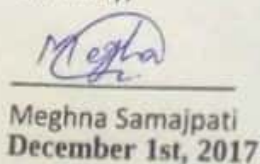 Megha
Meghna Samajpati
December 1st, 2017